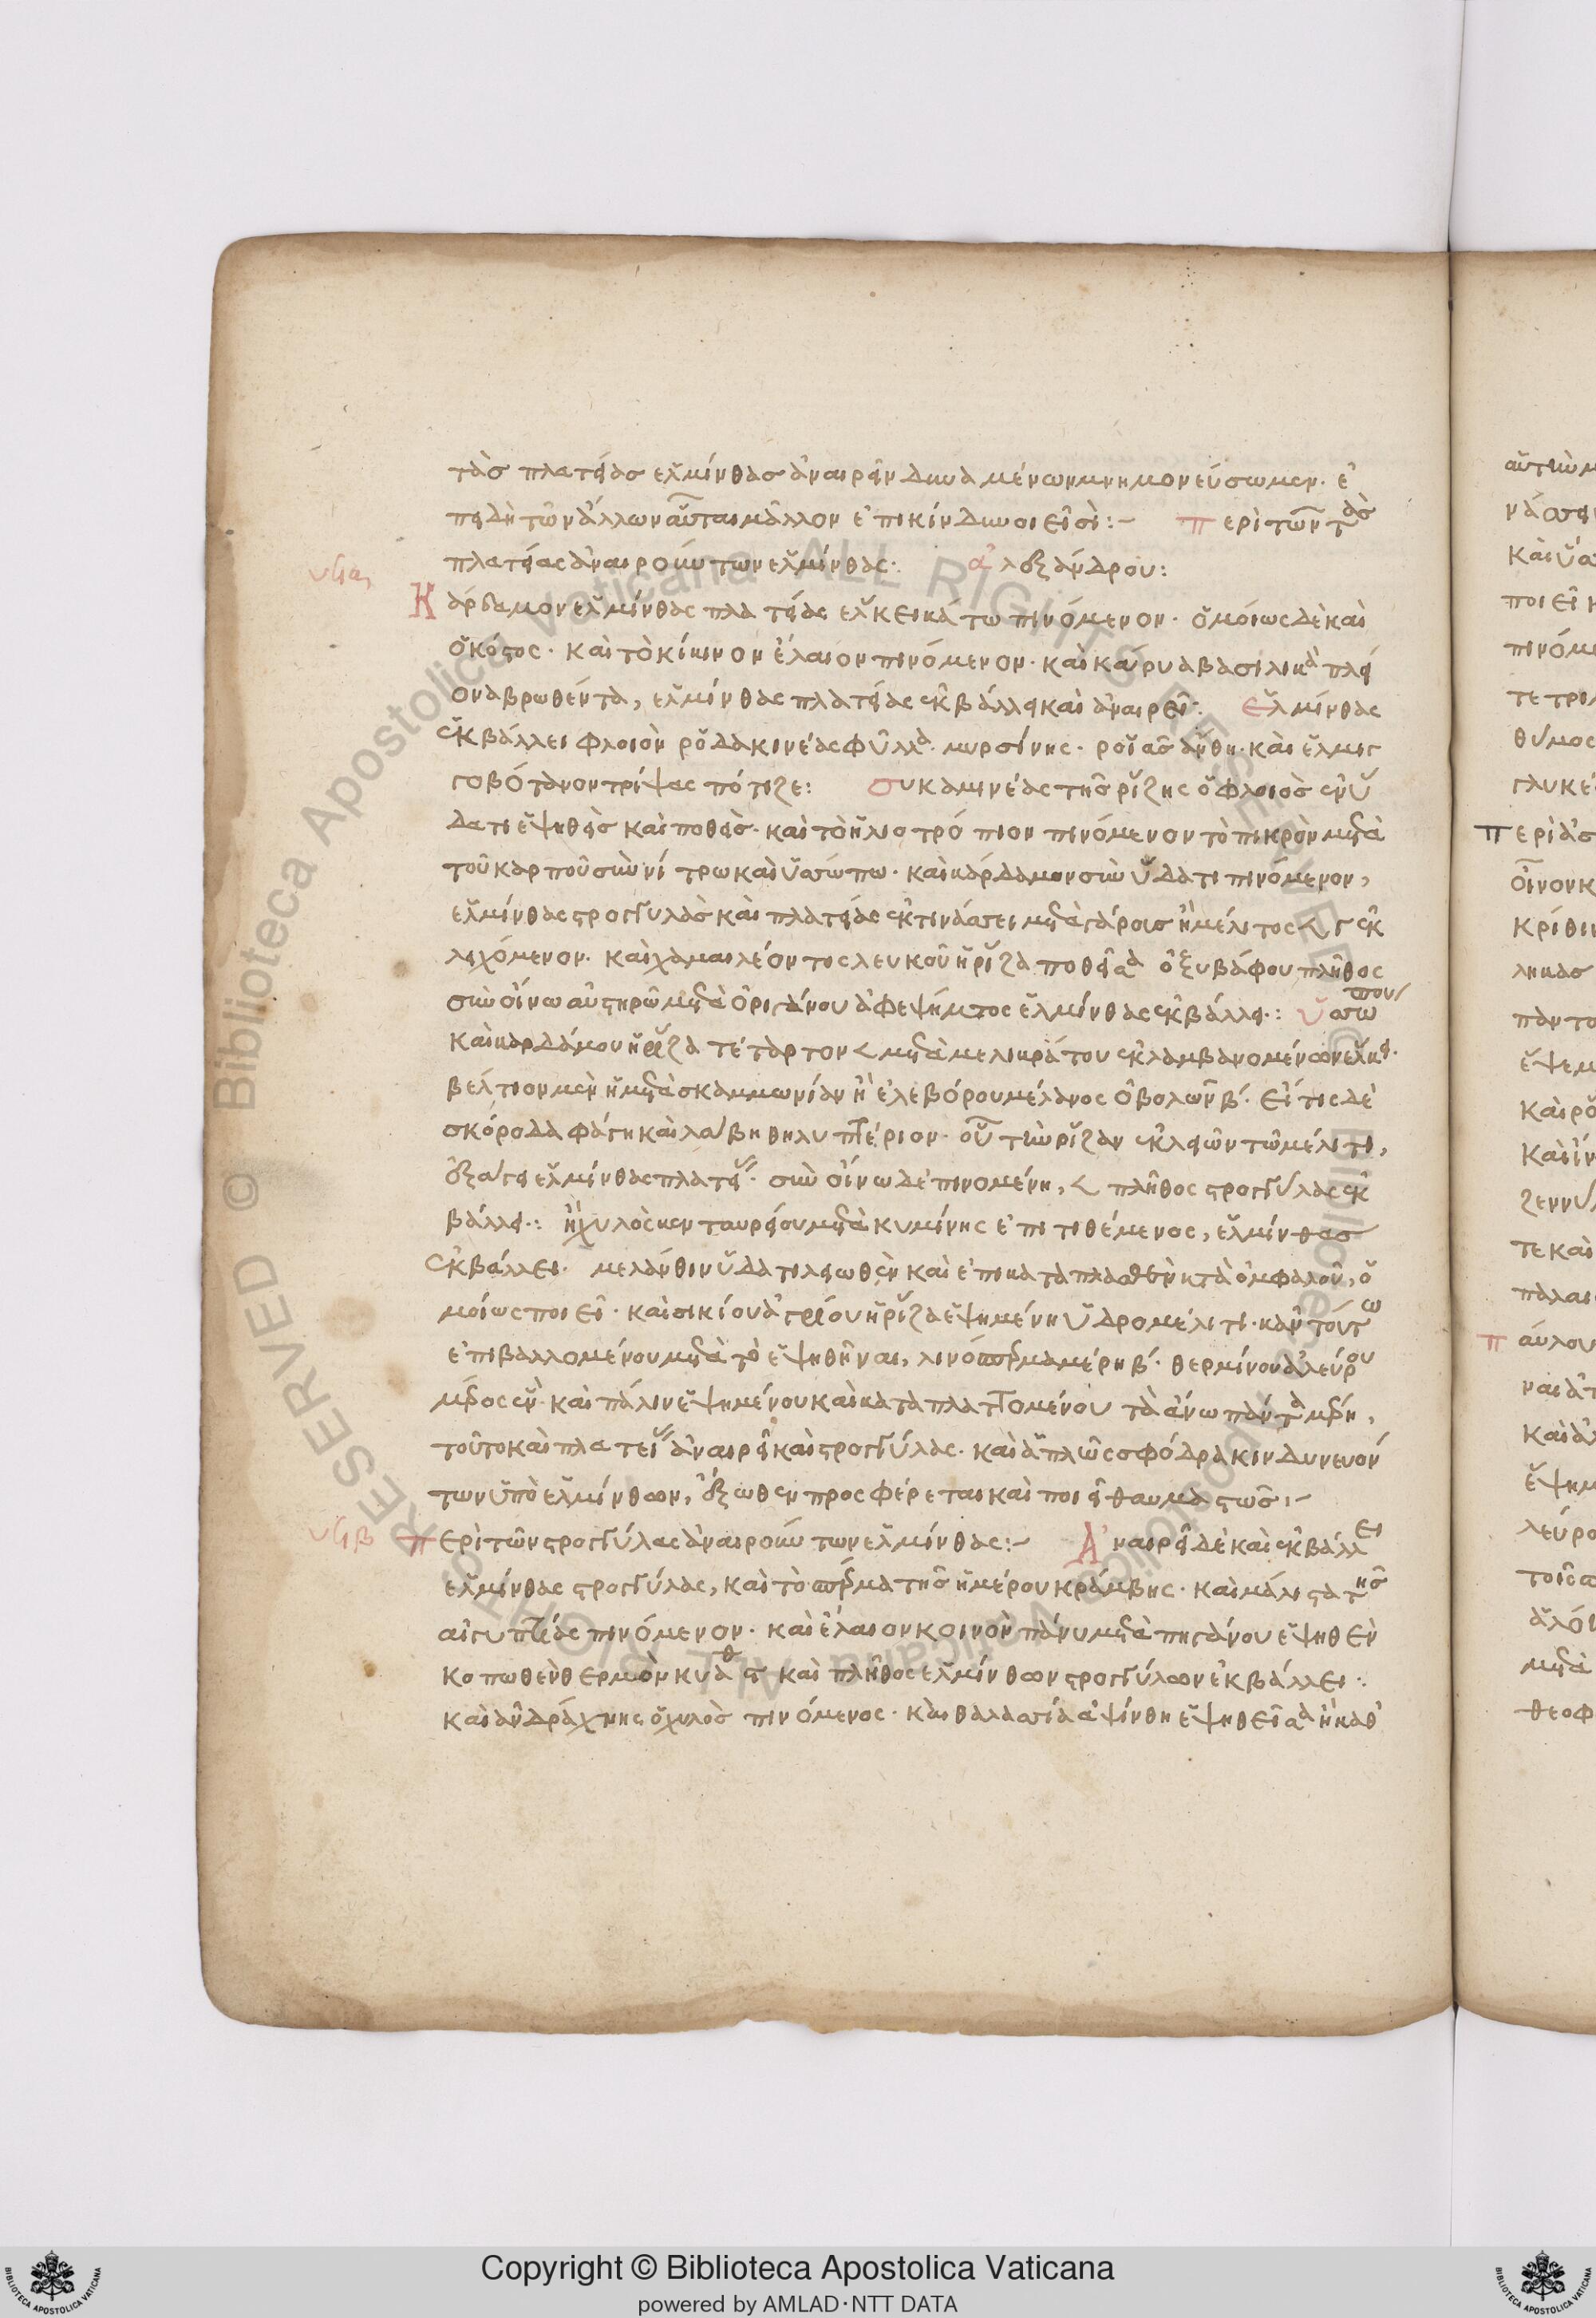 τὰσ πλατείας ἕλμινθας ἀναιρεῖν δυναμένων μνημονεύσωμεν· ἐ
πειδὴ τῶν ἄλλων αὗται μᾶλλον ἐπικίνδυνοι εἰσὶ:– Περὶ τῶν τὰσ
πλατείας ἀναιρούντων ἕλμινθας· ἀλεξάνδρου:
Κάρδαμον ἕλμινθας πλατείας ἕλκει κάτω πινόμενον· ὁμοίως δὲ καὶ
ὁ κόστος· καὶ τὸ κίκινον ἔλαιον πινόμενον· καὶ κάρυα βασιλικὰ πλεί
ονα βρωθέντα, ἕλμινθας πλατείας ἐκβάλλει καὶ ἀναιρεῖ: Ἕλμινθας
ἐκβάλλει φλοιὸν ῥοδακινέας φύλλα· μυρσίνης· ῥοιᾶς ἄνθη· καὶ ἕλμιγ
γοβότανον τρίψας πότιζε: Συκαμινέας τῆς ῥίζης ὁ φλοιὸς ἐν ὕ
δατι ἑψηθεὶς καὶ ποθεὶς· καὶ τὸ ἡλιοτρόπιον πινόμενον τὸ πικρὸν μετὰ
τοῦ καρποῦ σὺν νίτρω καὶ ὑσσώπω· καὶ κάρδαμον σὺν ὕδατι πινόμενον,
ἕλμινθας στρογγύλας καὶ πλατείας ἐκτινάσσει μετὰ γάρους ἢ μέλιτος < γ ἐκ
λειχόμενον· καὶ χαμαιλέοντος λευκοῦ ἡ ῥίζα ποθεῖσα ὀξυβάφου πλῆθος
σὺν οἴνω αὐστηρῶ μετὰ ὀριγάνου ἀφεψήματος ἕλμινθας ἐκβάλλει: ὑσσώπου
καὶ καρδάμου ἡ ῥίζα τέταρτον < μετὰ μελικράτου ἐκλαμβανομένων ἕλκει·
βέλτιον μὲν ἢ μετὰ σκαμμωνίαν ἢ ἐλεβόρου μέλανος ὀβολῶν β· Εἴ τις δὲ
σκόροδα φάγη καὶ λάβη θηλυπτέριον· οὗ τὴν ῥίζαν ἐκλειῶν τῶ μέλιτι,
ἐξάγει ἕλμινθας πλατείας· σὺν οἴνω δὲ πινομένη, < πλῆθος στρογγύλας ἐκ
βάλλει: ἢ χυλὸς κενταυρείου μετὰ κυμίνης ἐπιτιθέμενος, ἕλμινθας
ἐκβάλλει· μελάνθιν ὕδατι λειωθὲν καὶ ἐπικαταπλασθὲν κτὰ ὀμφαλοῦ, ὁ
μοίως ποιεῖ· καὶ σικίου ἀγρίου ἡ ῥίζα ἑψημένη ὑδρομέλιτι· κἀν τούτω
ἐπιβαλλομένου μετὰ τὸ ἑψηθῆναι, λινόσπερμα μέρη β· θερμίνου ἀλεύρου
μέρος ἓν· καὶ πάλιν ἑψημένου καὶ καταπλαττομένου τὰ ἄνω πάντα μέρη,
τοῦτο καὶ πλατείας ἀναιρεῖ καὶ στρογγύλας· καὶ ἁπλῶς σφόδρα κινδυνευόν
των ὑπὸ ἑλμίνθων, ἔξωθεν προσφέρεται καὶ ποιεῖ θαυμαστῶς:–
Περὶ τῶν στρογγύλας ἀναιρούντων ἕλμινθας:– Ἀναιρεῖ δὲ καὶ ἐκβάλλει
ἕλμινθας στρογγύλας, καὶ τὸ σπέρμα τῆς ἡμέρου κράμβης· καὶ μάλιστα τῆς
αἰγυπτίας πινόμενον· καὶ ἔλαιον κοινὸν πάνυ μετὰ πηγάνου ἑψηθὲν
κοπωθὲν θερμὸν κυάθ ϛ καὶ πλῆθος ἑλμίνθων στρογγύλων ἐκβάλλει:
καὶ ἀνδράχνης ὁ χυλὸς πινόμενος· καὶ θαλασσία ἀψίνθη ἑψηθεῖσα ἢ καθ'
Copyright © Biblioteca Apostolica Vaticana
powered by AMLAD·NTT DATA